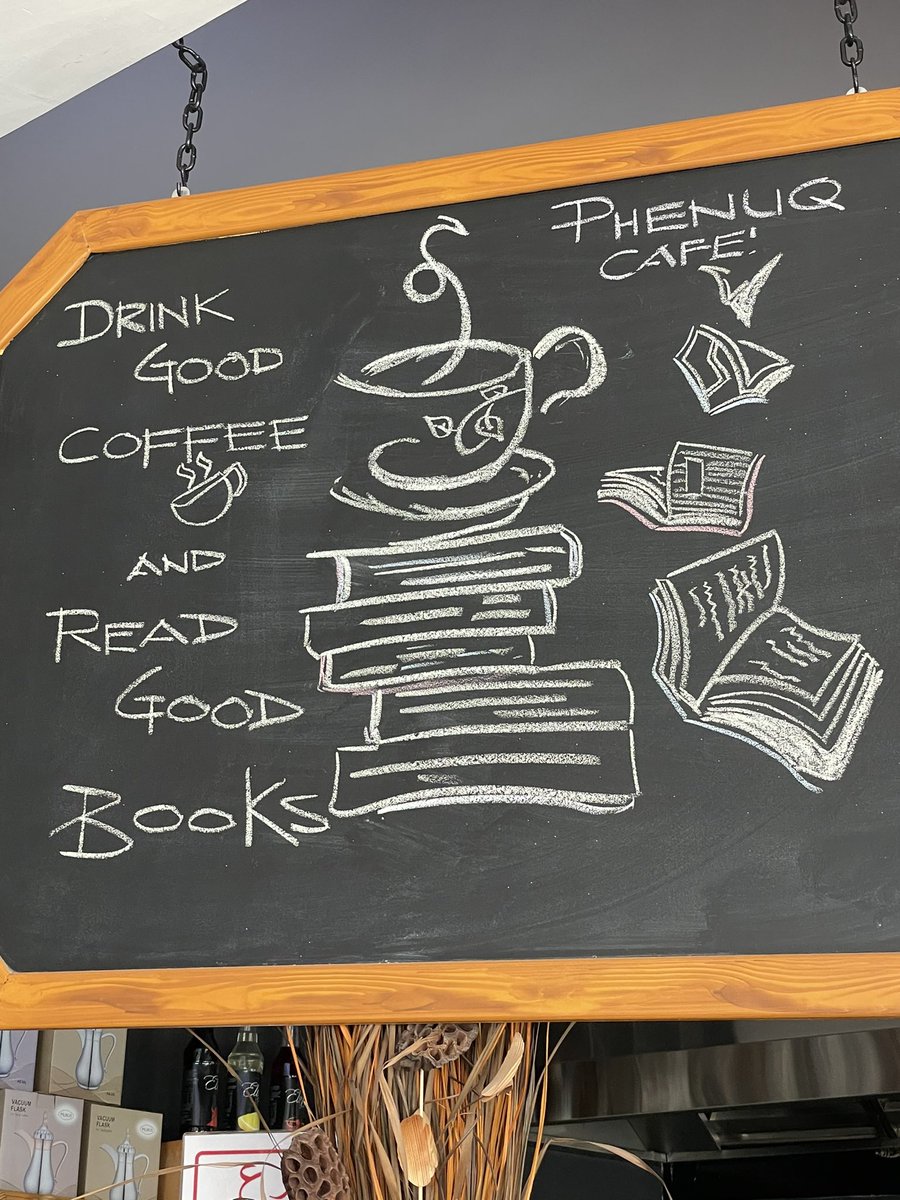 PHENLIQ
CAFE!
DRINK
GOOD
COFFEE
AND
READ
GOOD
BOOKS
VACUUM
FLASK
VACUUM
FLASK